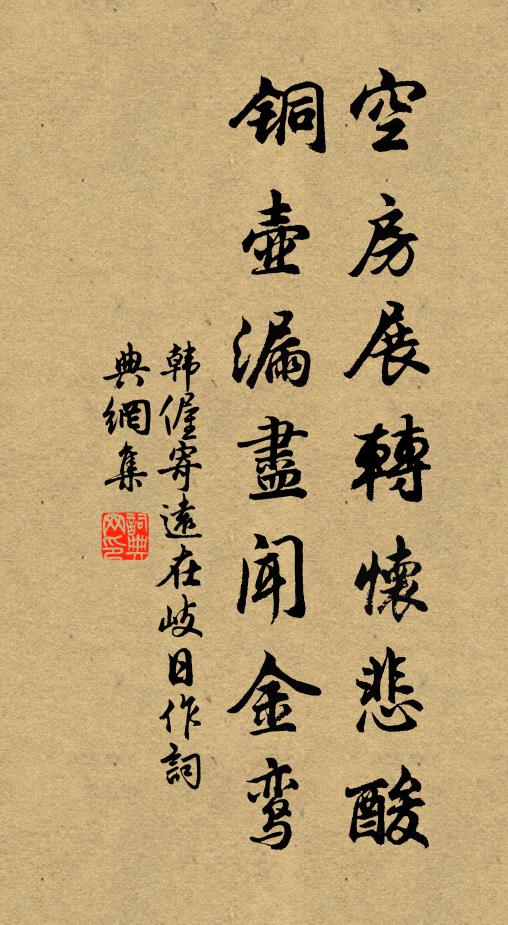 空房展轉懷悲酸
铜壺漏盡闻金鸾
韩偓寄遠在岐日作詞
典網集
詞典网印